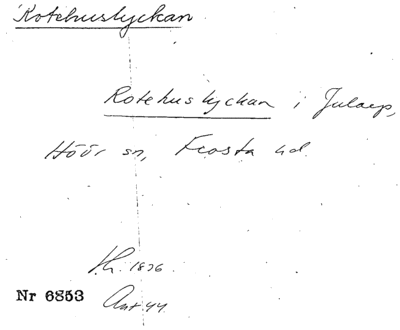 Rotehuslyckan
Rotehuslyckan i Jularp,
Höör sn, Frosta hd.
1896.
Nr 6853
Ant 44